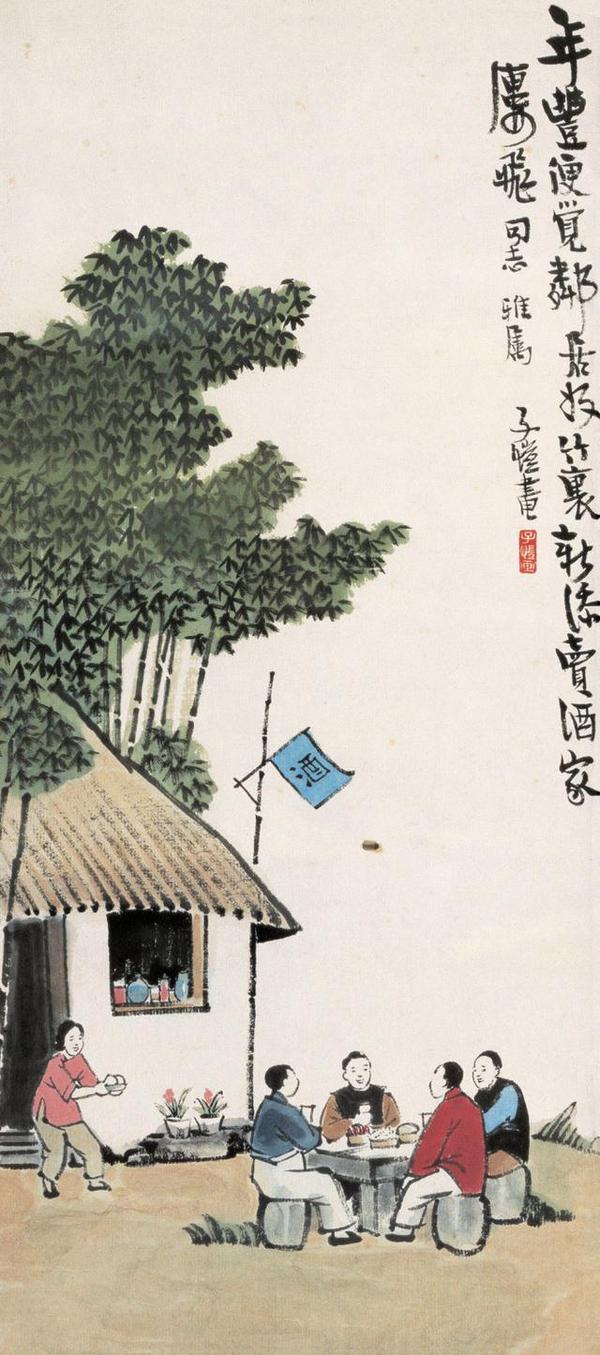 年豐便覚鄰居好竹裏新添賣酒家
飛同志 雅属
子愷畫
子愷畫
酒